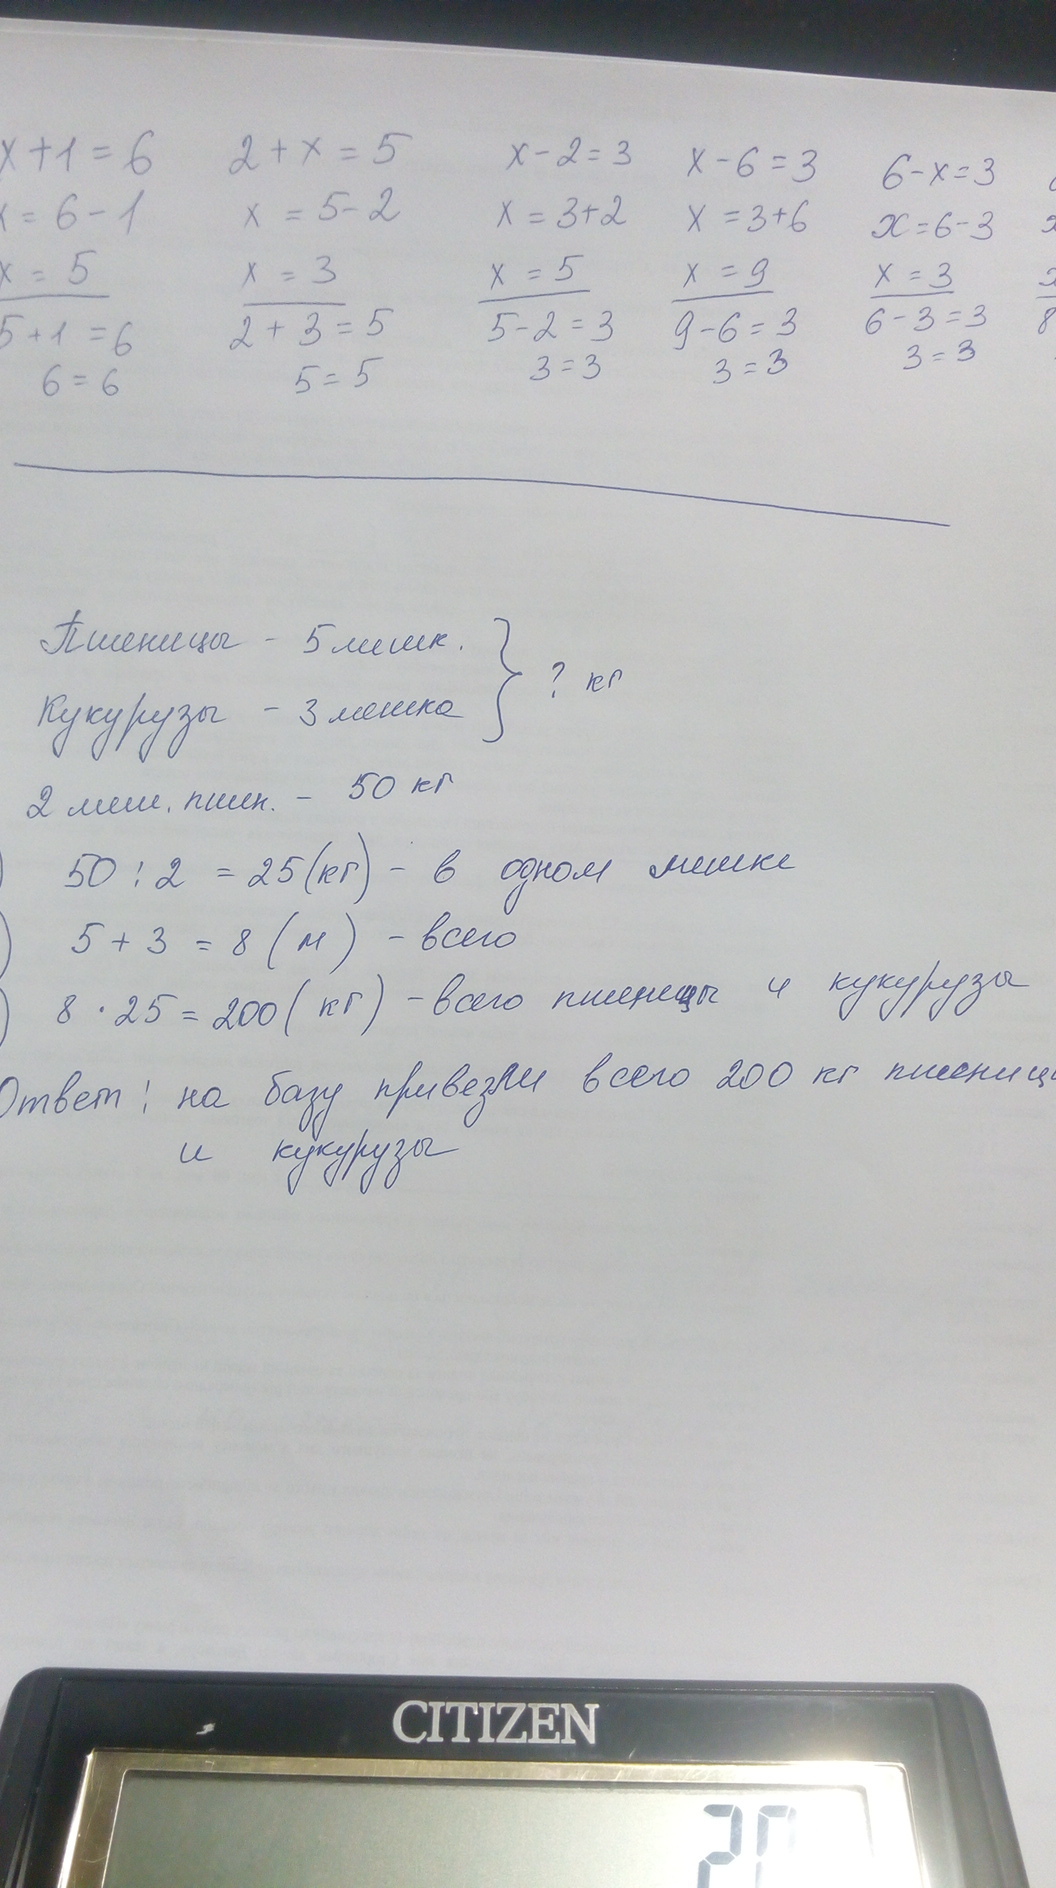 x+1=6 2+x=5 x-2=3 x-6=3 6-x=3
x=6-1 x=5-2 x=3+2 x=3+6 x=6-3
x=5 x=3 x=5 x=9 x=3
5+1=6 2+3=5 5-2=3 9-6=3 6-3=3 8
6=6 5=5 3=3 3=3 3=3
Пшеницы - 5 мешк.
? кг
Кукурузы - 3 мешка
2 меш. пшен. - 50 кг
) 50 : 2 = 25 (кг) - в одном мешке
) 5 + 3 = 8 (м) - всего
) 8 · 25 = 200 (кг) - всего пшеницы и кукурузы
Ответ: на базу привезли всего 200 кг пшениц
и кукурузы
CITIZEN